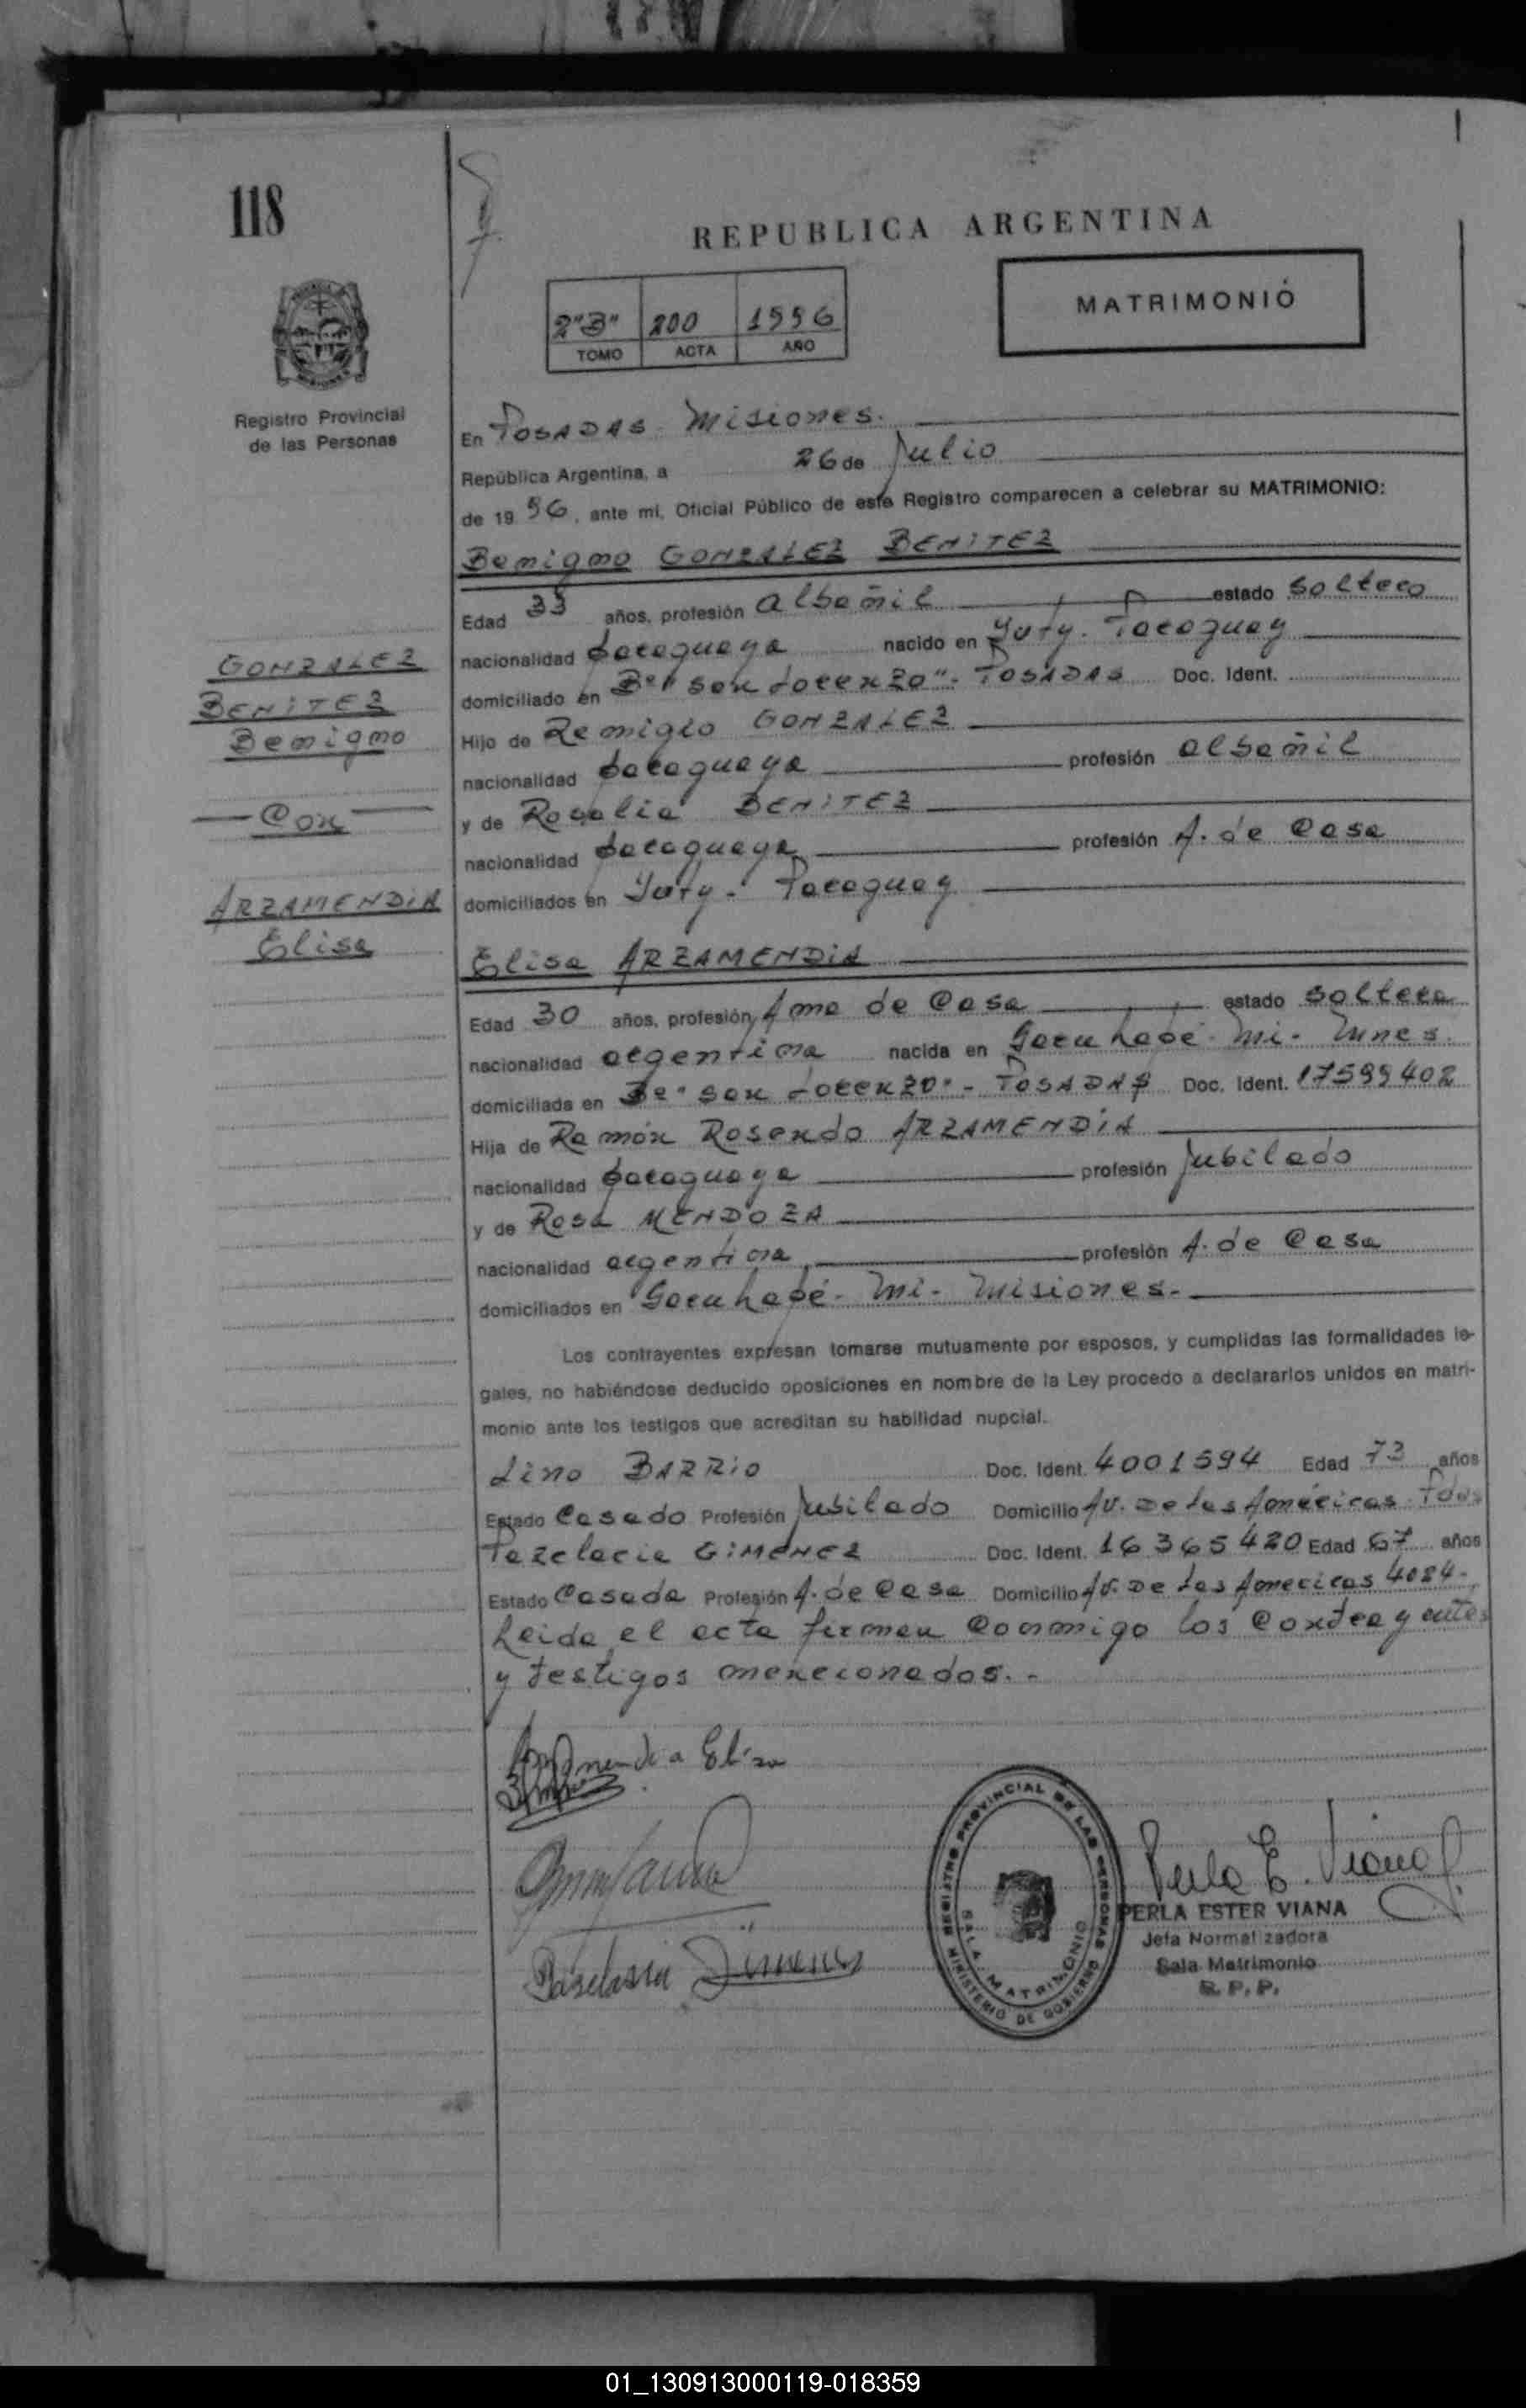 118
REPUBLICA ARGENTINA
2"B" 200 1996
TOMO ACTA AÑO
MATRIMONIO
Registro Provincial
de las Personas
En POSADAS - Misiones.
República Argentina, a 26 de Julio
de 19 96, ante mi, Oficial Público de este Registro comparecen a celebrar su MATRIMONIO:
Benigno GONZALEZ BENITEZ
Edad 33 años, profesión albañil estado soltero
nacionalidad paraguaya nacido en Yuty - Paraguay
domiciliado en B° "San Lorenzo" - POSADAS Doc. Ident.
Hijo de Remigio GONZALEZ
nacionalidad paraguaya profesión albañil
y de Rosalia BENITEZ
nacionalidad paraguaya profesión A. de Casa
domiciliados en Yuty - Paraguay
GONZALEZ
BENITEZ
Benigno
Con
ARZAMENDIA
Elisa
Elisa ARZAMENDIA
Edad 30 años, profesión Ama de Casa estado soltera
nacionalidad argentina nacida en Garuhapé - Mi - Mnes.
domiciliada en B° "San Lorenzo" - POSADAS Doc. Ident. 17599402
Hija de Ramón Rosendo ARZAMENDIA
nacionalidad paraguaya profesión Jubilado
y de Rosa MENDOZA
nacionalidad argentina profesión A. de Casa
domiciliados en Garuhapé - Mi - Misiones.-
Los contrayentes expresan tomarse mutuamente por esposos, y cumplidas las formalidades le-
gales, no habiéndose deducido oposiciones en nombre de la Ley procedo a declararlos unidos en matri-
monio ante los testigos que acreditan su habilidad nupcial.
Lino BARRIO Doc. Ident. 4001594 Edad 73 años
Estado Casado Profesión Jubilado Domicilio Av. De Las Américas - Pdas
Pazclacia GIMENEZ Doc. Ident. 16365420 Edad 67 años
Estado Casada Profesión A. de Casa Domicilio Av. De Las Americas 4084.-
Leida el acta firman conmigo los contrayentes
y testigos mencionados.-
Arzamendia Elisa
Gimenez
REGISTRO PROVINCIAL DE LAS PERSONAS
MINISTERIO DE GOBIERNO
SALA MATRIMONIO
Perla E. Viana
PERLA ESTER VIANA
Jefa Normalizadora
Sala Matrimonio
R. P. P.
01_130913000119-018359